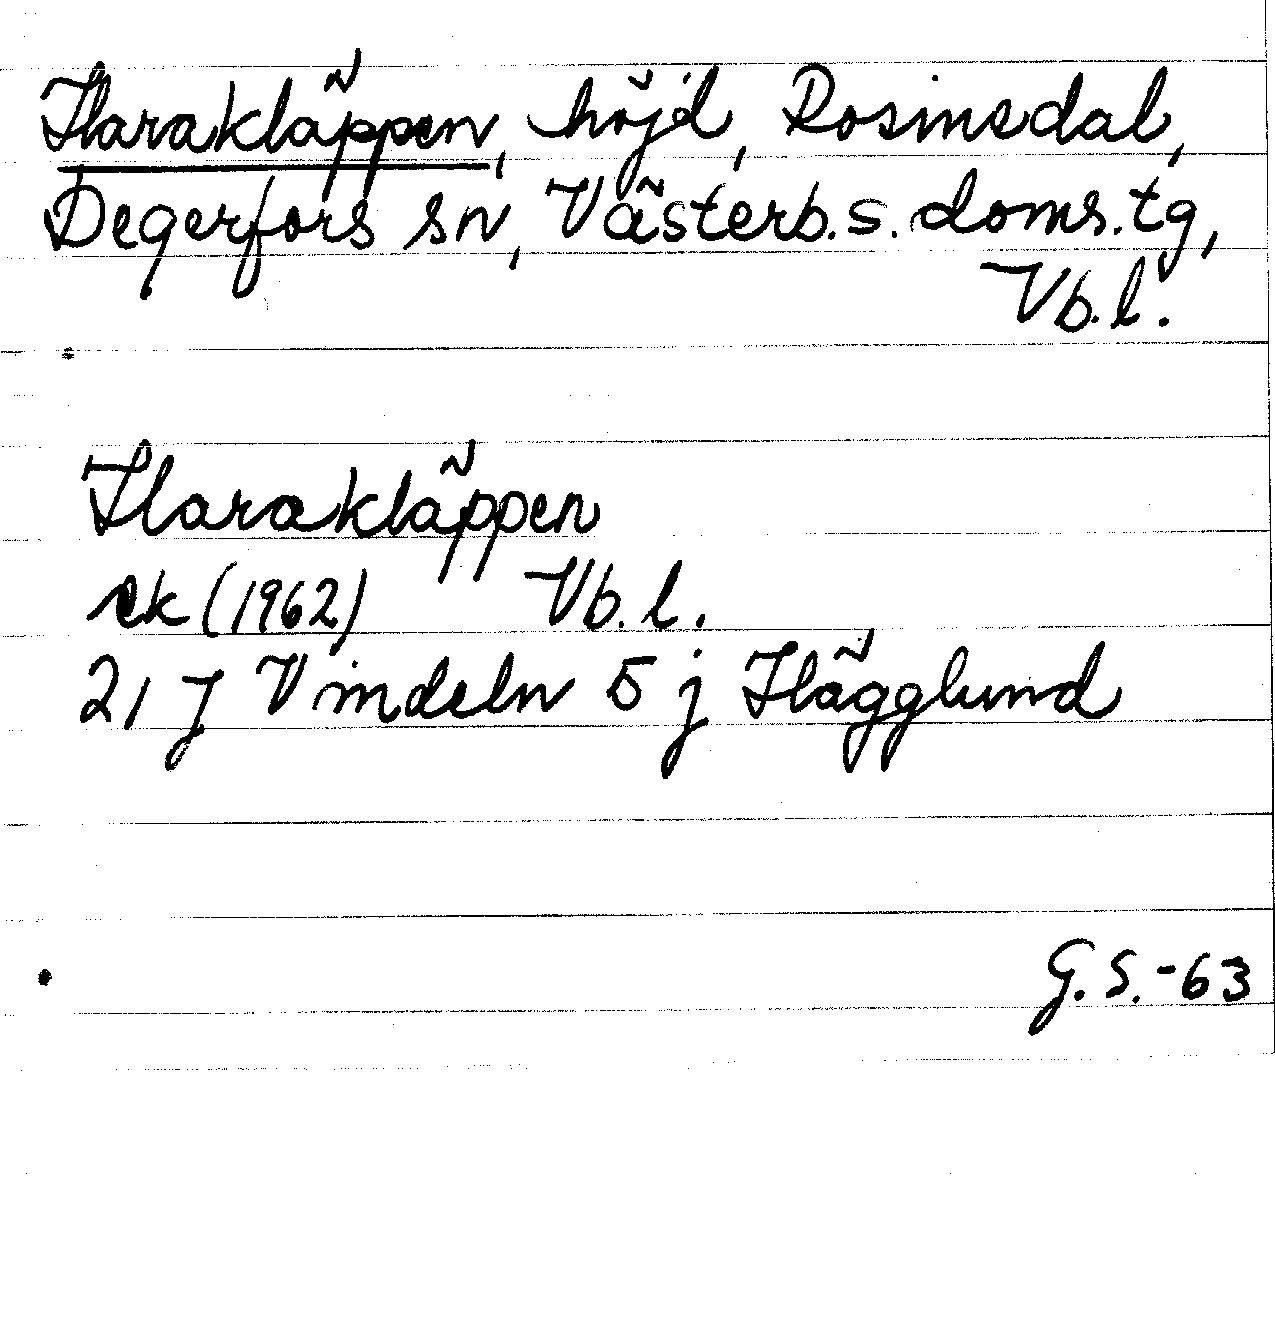 Harakläppen, höjd, Rosinedal,
Degerfors sn, Västerb.s. doms.tg,
Vb.l.
Harakläppen
ek (1962) Vb.l.
21 J Vindeln 5 j Hägglund
G.S.-63